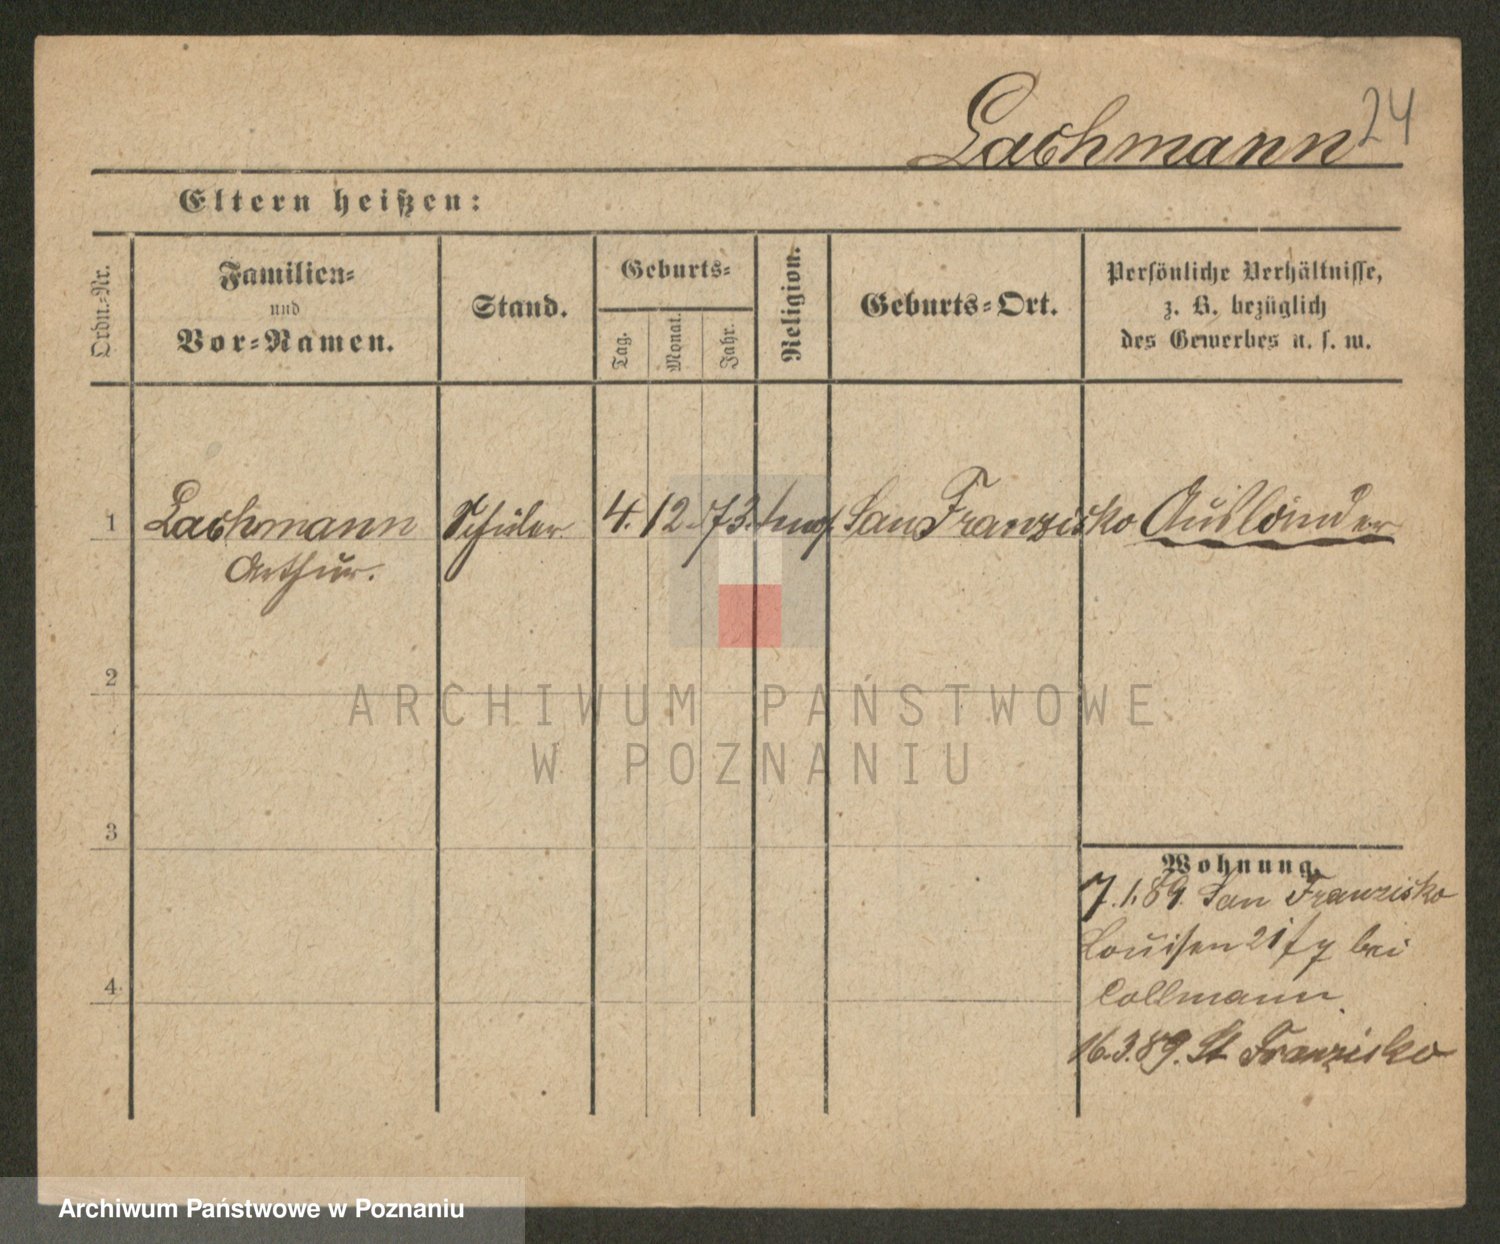 Lachmann 24
Eltern heißen:
Ordn.-Nr.
Familien-
und
Vor-Namen.
Stand.
Geburts-
Tag.
Monat.
Jahr.
Religion.
Geburts-Ort.
Persönliche Verhältnisse,
z. B. bezüglich
des Gewerbes u. s. w.
1 Lachmann Schüler 4. 12. 73. San Franzisko Ausländer
Arthur.
2
3
4
Wohnung.
7.1.89. San Franzisko
Louisen 21 bei
Collmann.
16.3.89. St Franzisko
ARCHIWUM PAŃSTWOWE
W POZNANIU
Archiwum Państwowe w Poznaniu